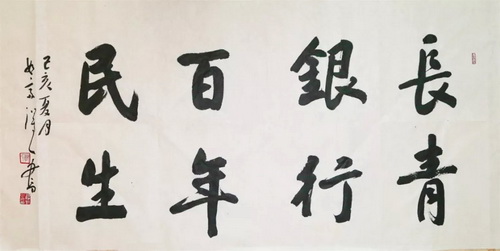 長青
銀行
百年
民生
己亥夏月